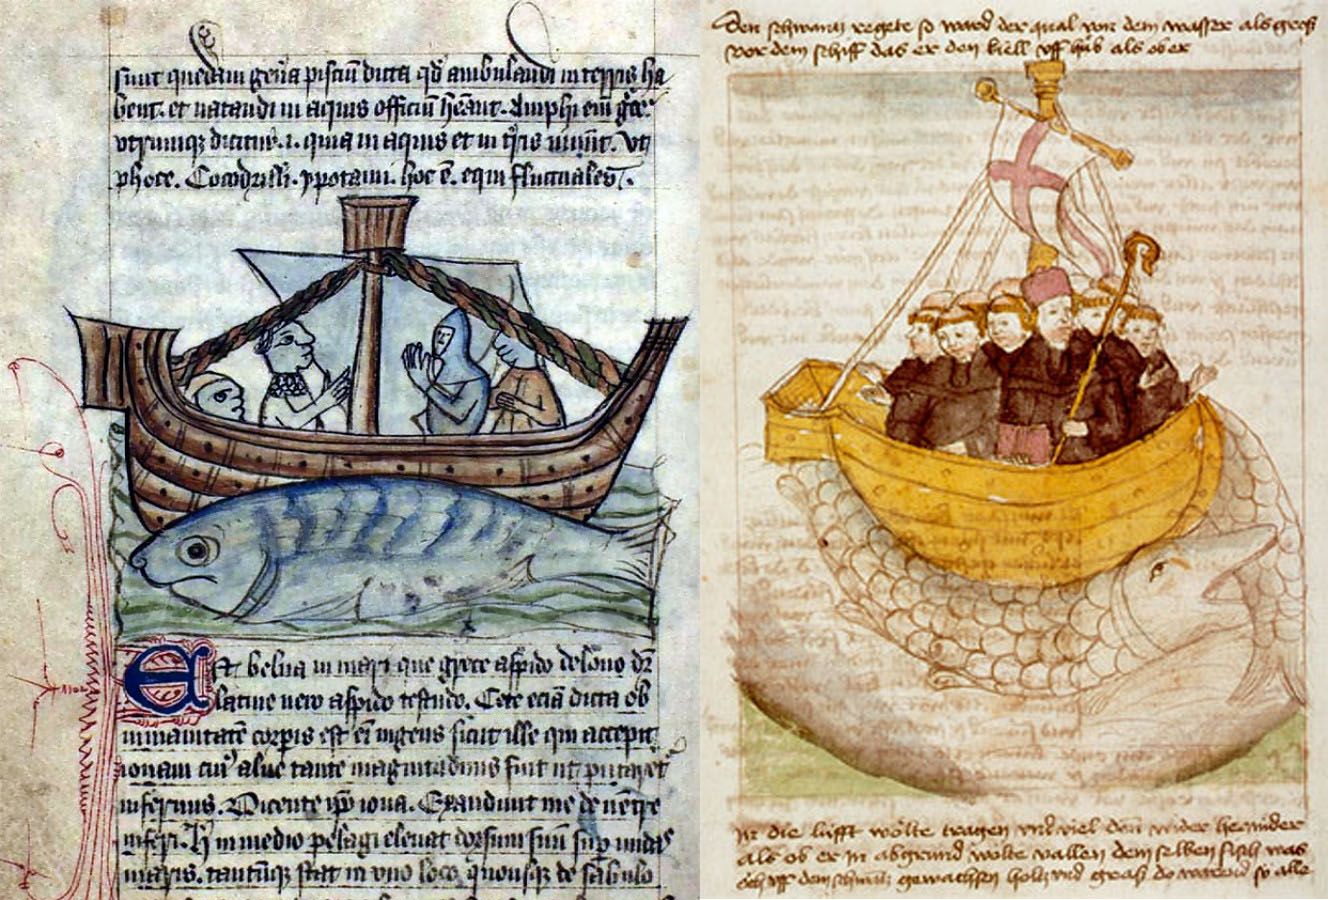 sunt quedam gn̄a pisciū dicta qđ ambulandi in terris ha
bent. et natandi in aquis officiū hēant. Amphi em̄ gͤce
utrumqꝫ dicitur .i. quia in aquis et in tͥris uiuūt. Vt
phoce. Cocodrilli. ypotami. hoc ē. equi fluctuales.
Est belua in mari que grece aspido delōno dr̄
latine uero aspido testudo. Cete eciā dicta ob
inmanitatē corpis est ei ingens sicut ille qui accepit
ionam cuiꝰ aluꝰ tante magnitudinis fuit ut putaret
infernus. Dicente ip̄o iona. Exaudiuit me de uentre
inferi. H in medio pelagi eleuat dorsum suū suꝑ undas
maris. tantūqꝫ stat in uno loco quousqꝫ de sabulo
Den schwanz regete so ward der qual von dem wasser als gros
vor dem schiff das er den kiell uff hub als ob er
in die lufft wolte tragen vnd viel dan wider herunder
als ob er in abgrund wolte vallen dem selben fisch was
och uff dem schwanz gewachsen holz vnd gras do warend sy alle